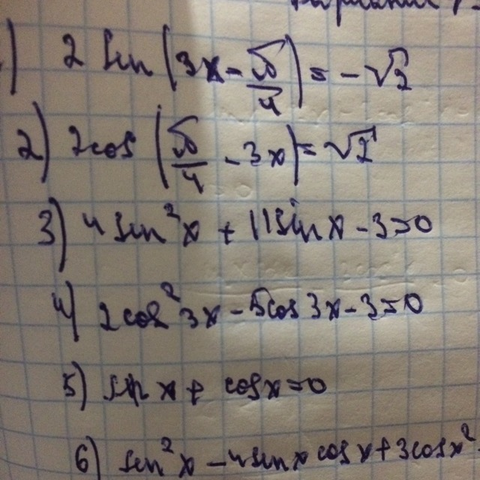 ) 2 sin (3x - π/4) = -√2
2) 2cos (π/4 - 3x) = √2
3) 4 sin²x + 11 sin x - 3 = 0
4) 2cos²3x - 5cos3x - 3 = 0
5) sin x + cosx = 0
6) sin²x - 4sinx cosx + 3cosx²